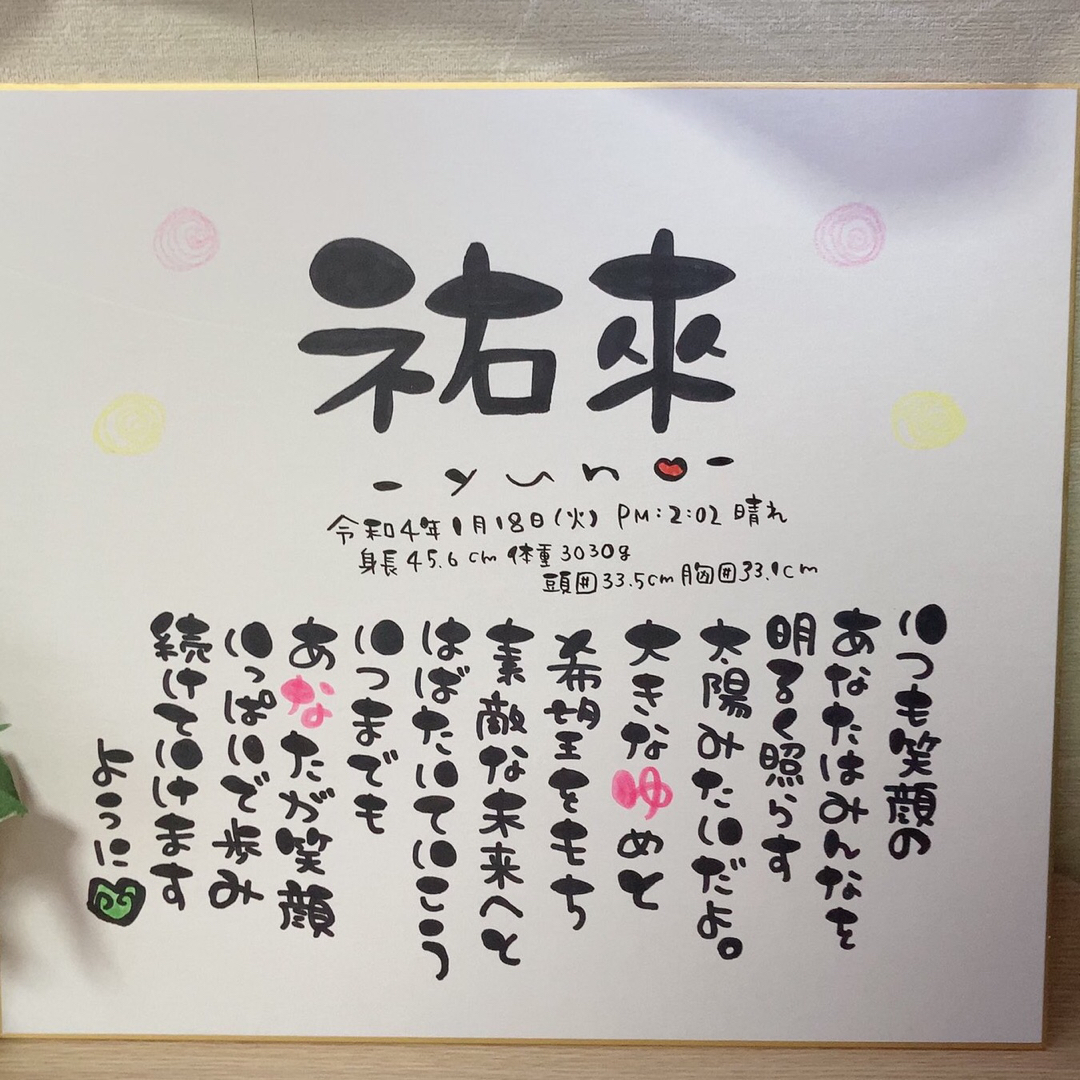 祐來
- yuna -
令和4年1月18日(火) PM:2:02 晴れ
身長45.6cm 体重3030g
頭囲33.5cm 胸囲33.1cm
いつも笑顔の
あなたはみんなを
明るく照らす
太陽みたいだよ。
大きなゆめと
希望をもち
素敵な未来へと
はばたいていこう
いつまでも
あなたが笑顔
いっぱいで歩み
続けていけます
ように